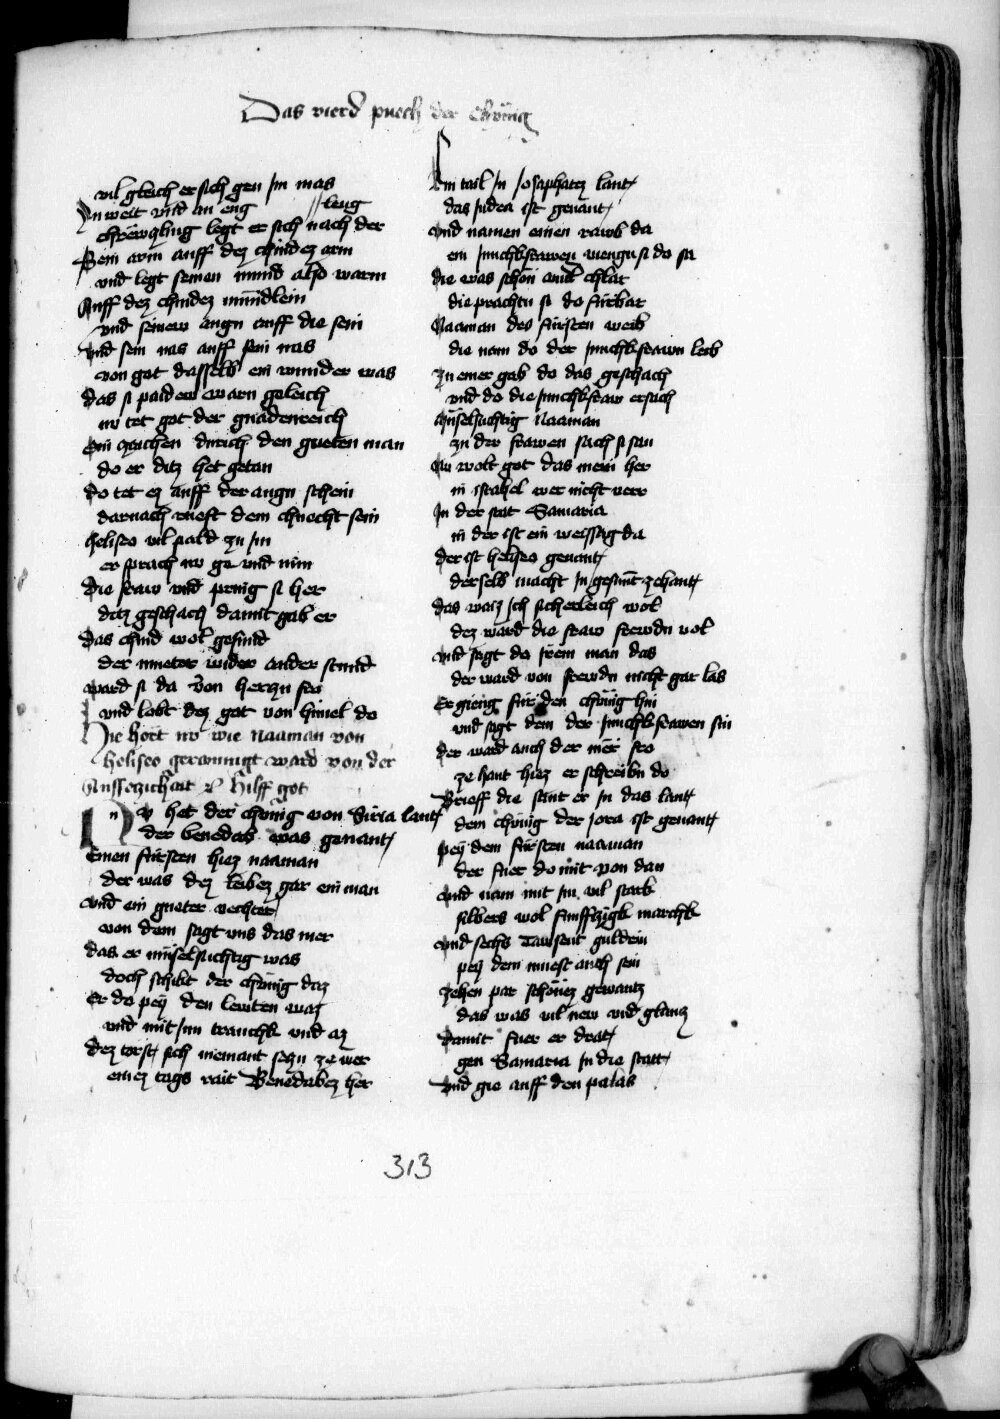 Das vierd puech der Chünig
vil gleich er sich gen im mas
In weit vnd an eng
leng
chrewczling legt er sich nach der
Sein arm auff dez chindez arm
vnd legt seinen mund also warm
Auff dez chindez mündlein
vnd seinew augn auff die sein
Vnd sein nas auff sein nas
von got dasselb ein wunder was
das si paidew warn geleich
nv tet got der gnadenreich
Ein zaichen durich den gueten man
do er ditz het getan
do tet ez auff der augn schein
darnach rueft dem chnecht sein
heliseo vil pald zu im
er sprach nv ge vnd nim
die fraw vnd pring si her
ditz geschach damit gab er
das chind wol gesund
der mueter wider ander stund
ward si da von herczn fro
vnd lobt dez got von himel do
Hie hört nv wie naaman von
heliseo gerainnigt ward von der
Aussetzichait etc hilff got
Nv het der chönig von Siria lant
der benedab was genant
Einen fürsten hiez naaman
der was dez leibez gar ein man
vnd ein gueter vechter
von dem sagt vns das mer
das er müselsuchtig was
doch schikt der chünig daz
Er do pey den lewten waz
vnd mit im tranchk vnd az
dez torst sich niemant seczn ze wer
einez tags rait Benedabez her
Ein tail in Josaphatz lant
das Judea ist genant
vnd namen einen rawb da
ein junchkfrawen viengn si do sa
die was schön vnd chlar
die prachtn si do fürbar
Naaman des fürsten weib
die nam do der junchkfrawn leib
Zu einer gab do das geschach
vnd do die junchkfraw ersach
Müselsuchtig Naaman
zu der frawen sach si san
Nv wolt got das mein her
in israhel wer nicht verr
In der stat Samaria
in der ist ein weissag da
der ist heliseo genant
derselb macht in gesunt zehant
das waiz ich sicherleich wol
dez ward die fraw frewdn vol
vnd sagt do irem man das
der ward von frewdn nicht gar las
Er gieng für den chünig hin
vnd sagt dem der junchkfrawen sin
der ward auch der mer fro
ze hant hiez er schreibn do
Brieff die sant er in das lant
dem chünig der Jora ist genant
pey dem fürsten naaman
der fuer do mit von dan
vnd nam mit im vil starkch
silbers wol fünffczigk marchk
vnd sechs tausent guldein
pey dem muest auch sein
Zehen par schönez gewantz
das was vil new vnd glantz
damit fuer er drat
gen Samaria in die statt
vnd gie auff den palas
313